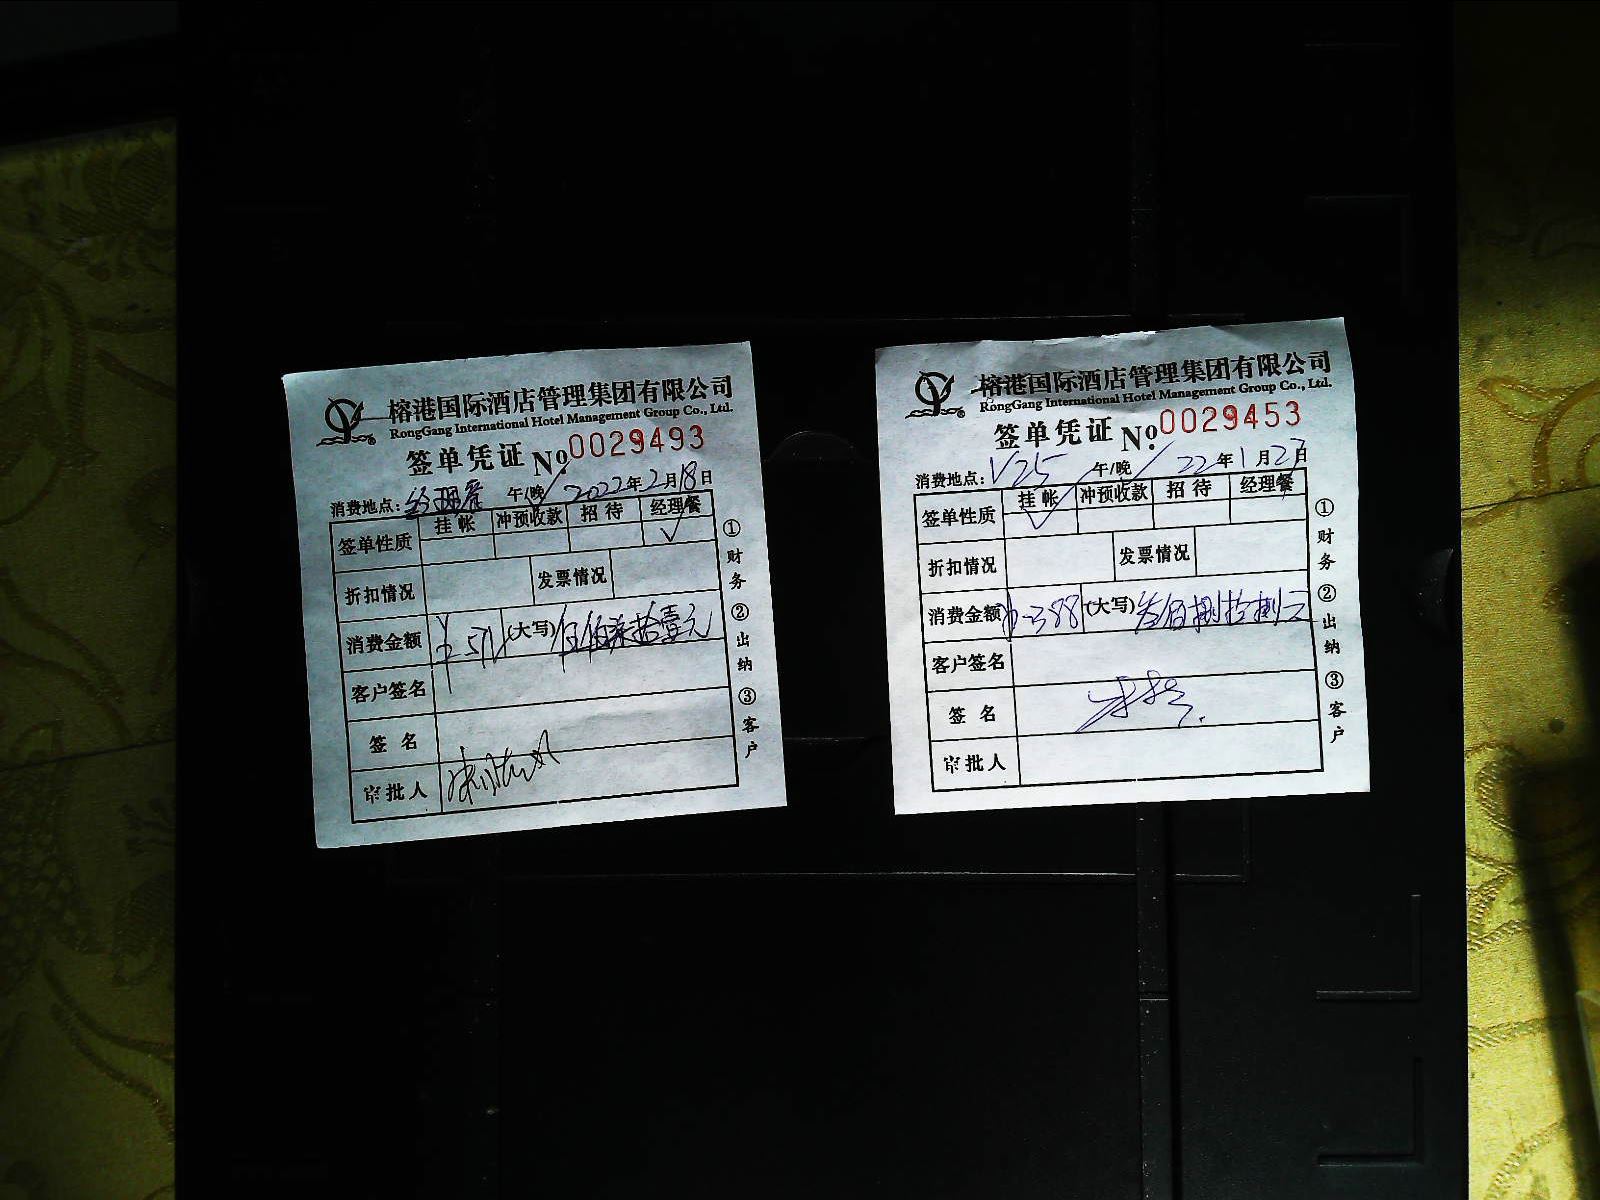 榕港国际酒店管理集团有限公司
RongGang International Hotel Management Group Co., Ltd.
签单凭证 No. 0029493
消费地点: 午/晚 2022年2月18日
签单性质 挂帐 冲预收款 招待 经理餐
✓
折扣情况 发票情况
消费金额 ¥571 (大写) 伍佰柒拾壹元
客户签名
签名
审批人
①财务 ②出纳 ③客户
榕港国际酒店管理集团有限公司
RongGang International Hotel Management Group Co., Ltd.
签单凭证 No. 0029453
消费地点: V25 午/晚 22年1月27日
签单性质 挂帐 冲预收款 招待 经理餐
✓
折扣情况 发票情况
消费金额 388 (大写) 叁佰捌拾捌元
客户签名
签名
审批人
①财务 ②出纳 ③客户